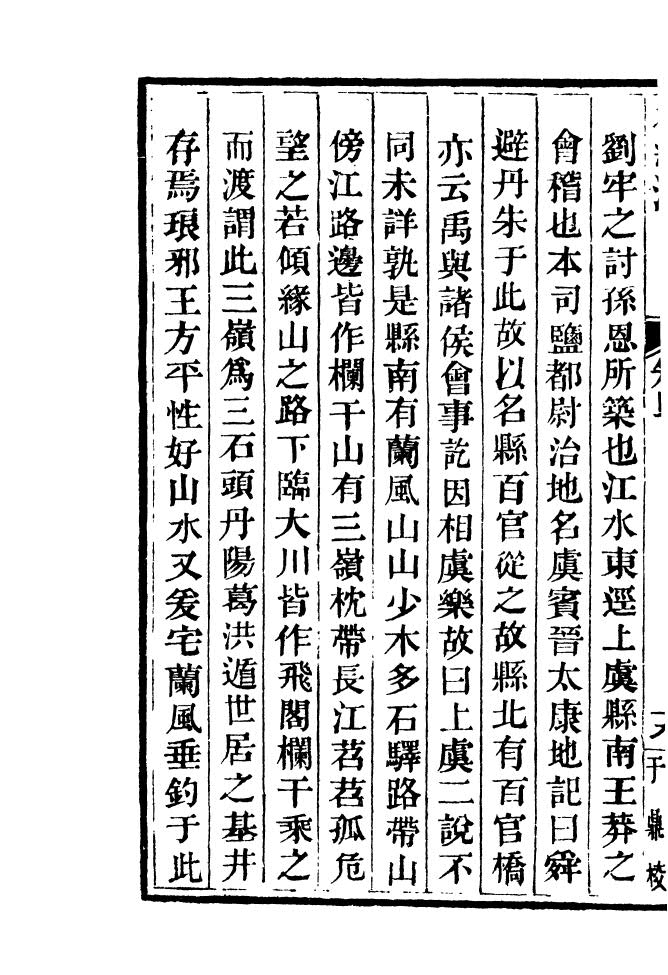 劉牢之討孫恩所築也江水東逕上虞縣南王莽之
會稽也本司鹽都尉治地名虞賓晉太康地記曰舜
避丹朱于此故以名縣百官從之故縣北有百官橋
亦云禹與諸侯會事訖因相虞樂故曰上虞二說不
同未詳孰是縣南有蘭風山山少木多石驛路帶山
傍江路邊皆作欄干山有三嶺枕帶長江苕苕孤危
望之若傾緣山之路下臨大川皆作飛閣欄干乘之
而渡謂此三嶺爲三石頭丹陽葛洪遁世居之基井
存焉琅邪王方平性好山水又爰宅蘭風垂釣于此